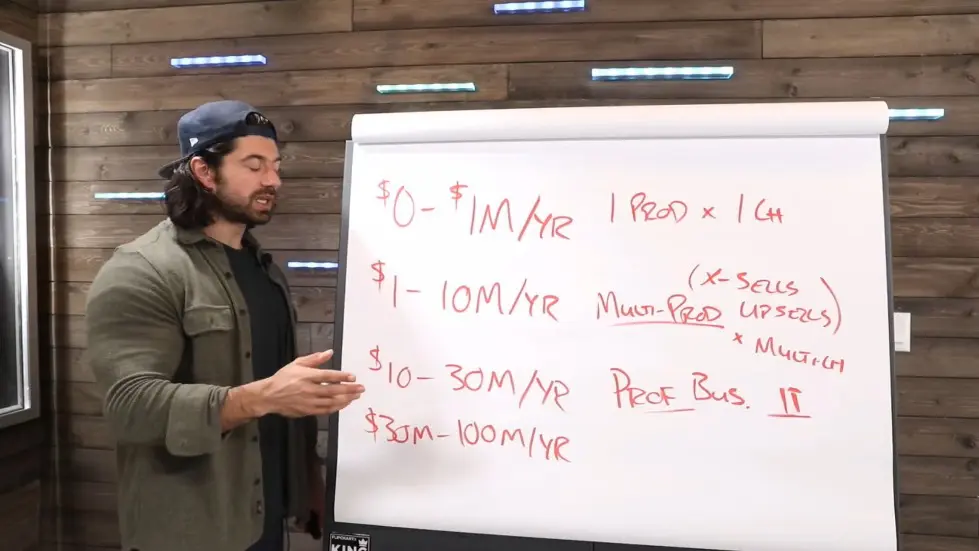 $0 - $1M/YR 1 PROD x 1 CH
$1 - 10M/YR MULTI-PROD (X-SELLS UPSELLS)
x MULTI CH
$10 - 30M/YR PROF BUS. II
$30M - 100M/YR
FLIPCHART
KING